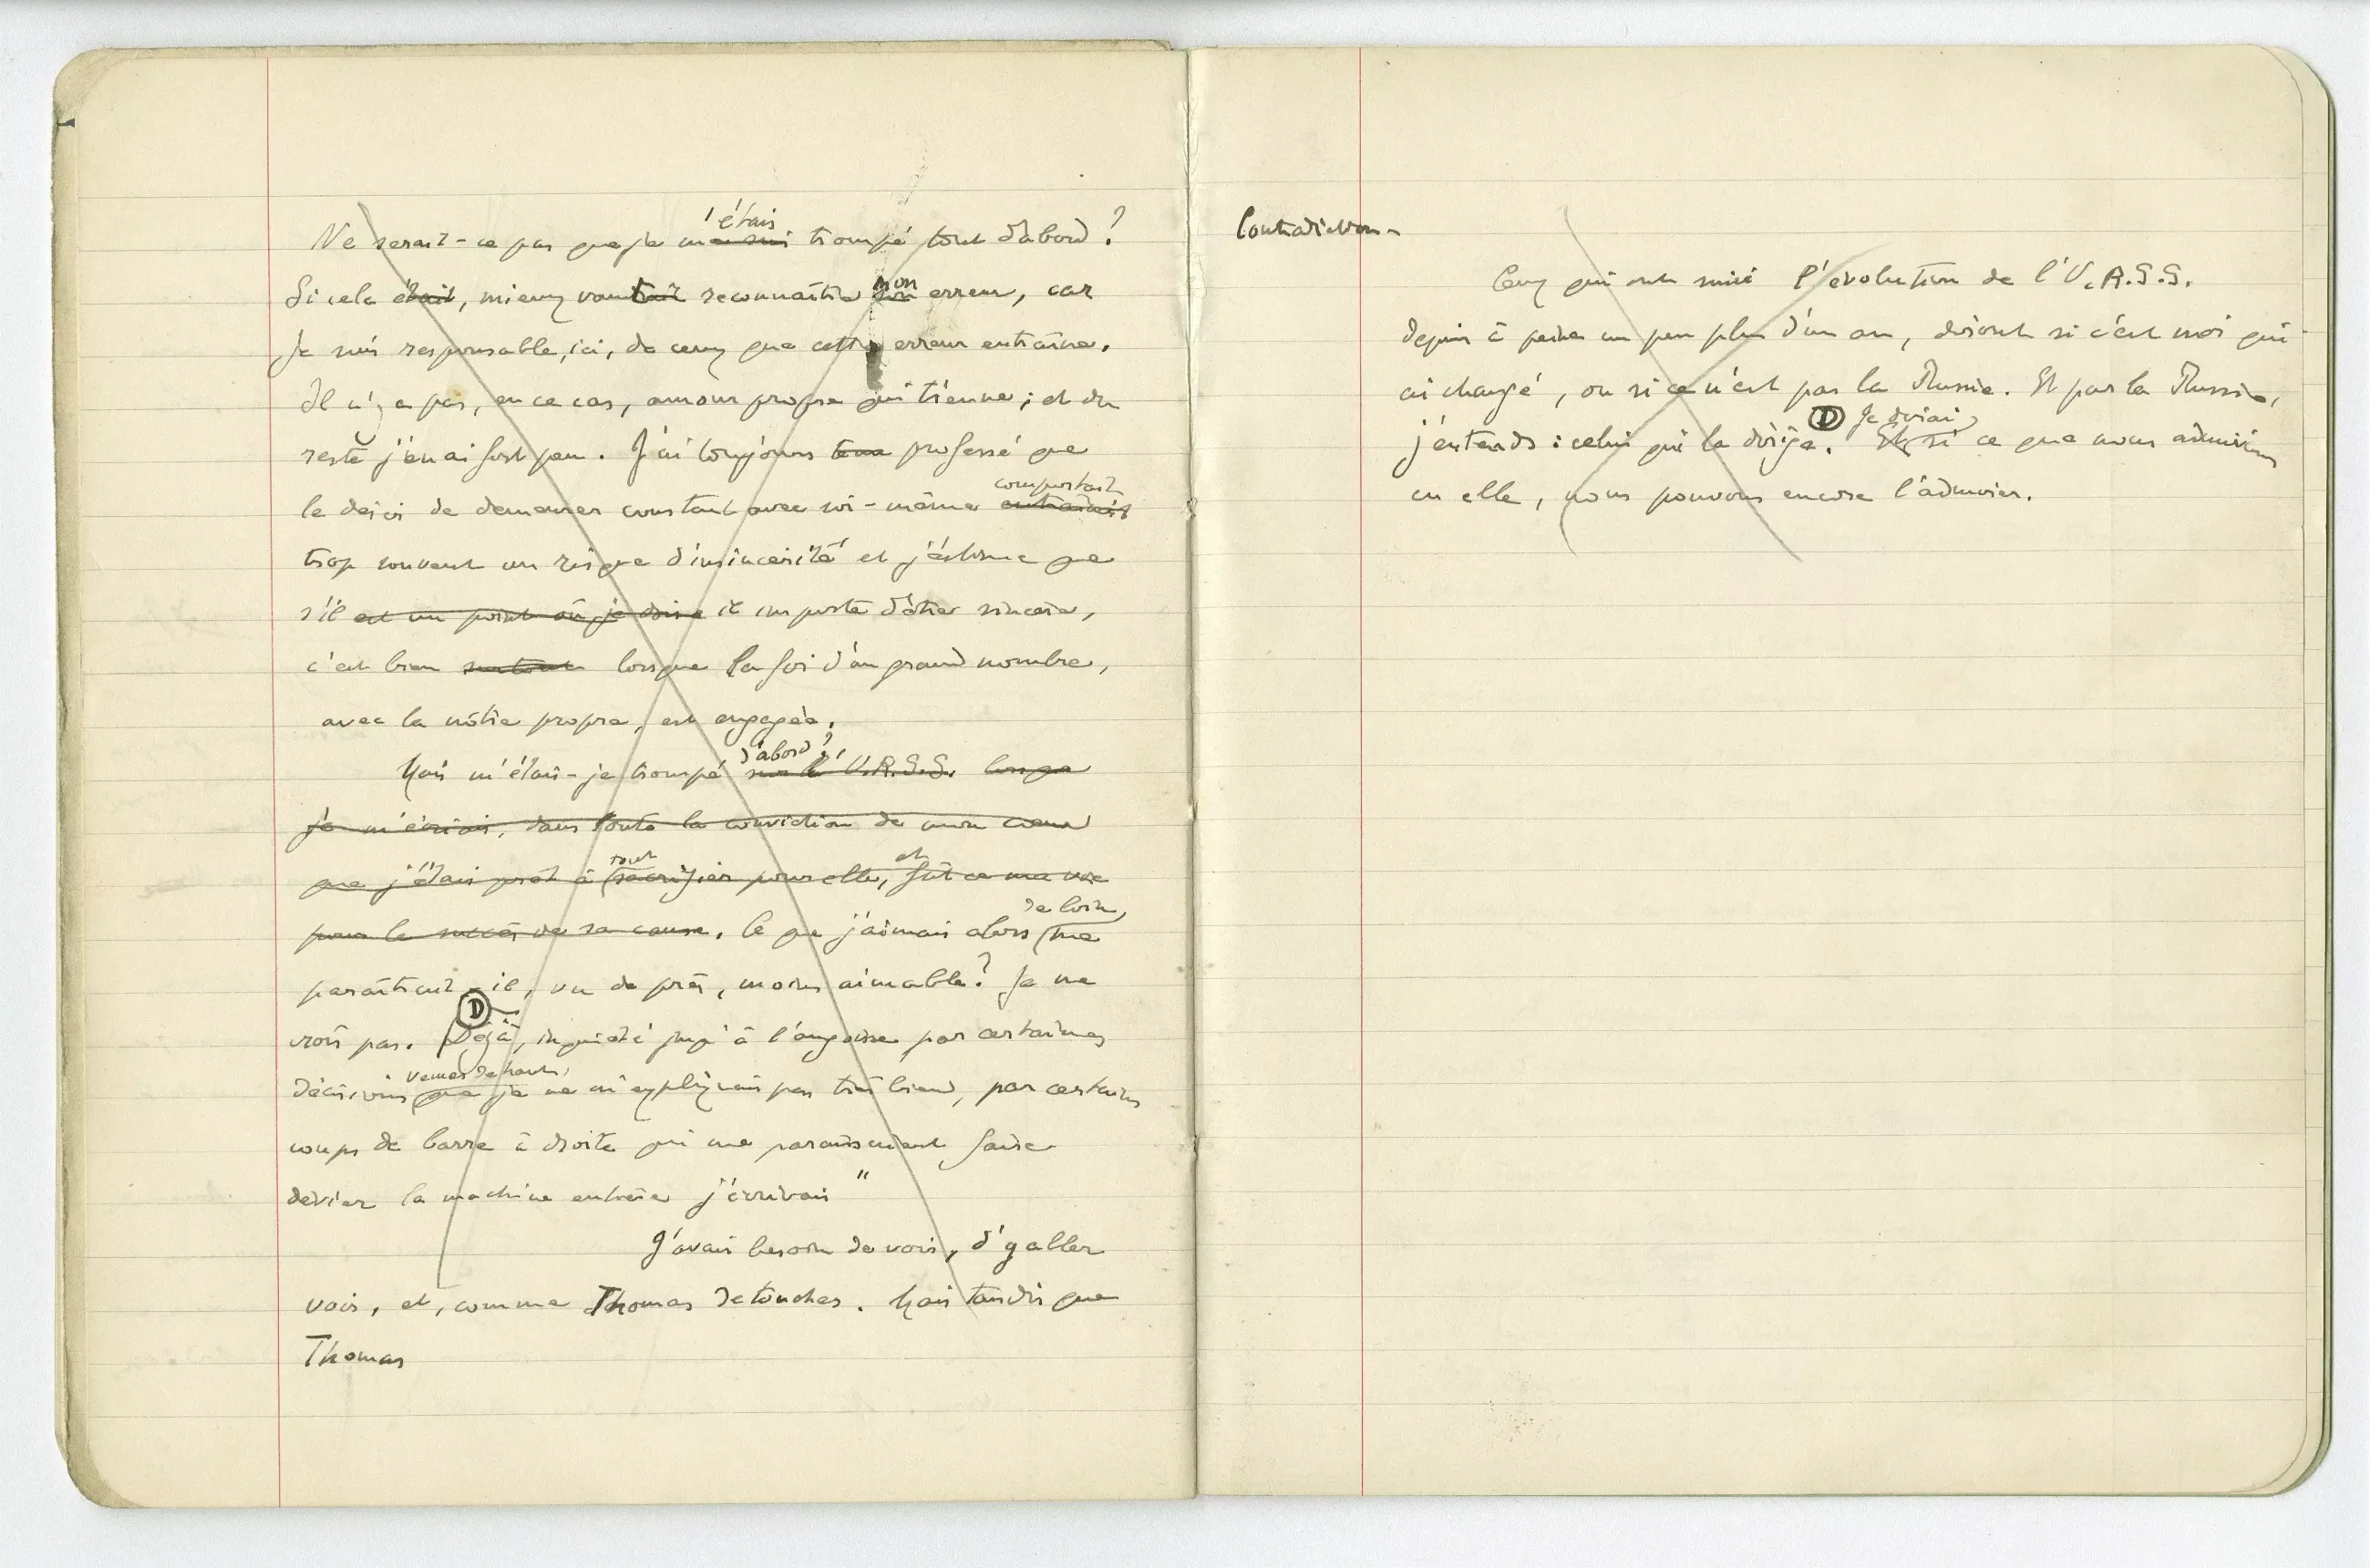 Ne serait-ce pas que je me suis m'étais trompé tout d'abord ?
Si cela était, mieux vaudrait reconnaître mon erreur, car
je suis responsable, ici, de ceux que cette erreur entraîne.
Il n'y a pas, en ce cas, amour propre qui tienne ; et du
reste j'en ai fort peu. J'ai toujours professé que
le désir de demeurer constant avec soi-même entraînait comportait
trop souvent un risque d'insincérité et j'estime que
s'il est un point où je doive il importe d'être sincère,
c'est bien surtout lorsque la foi d'un grand nombre,
avec la nôtre propre, est engagée.
Mais m'étais-je trompé d'abord ? sur l'U.R.S.S. lorsque
je m'écriais, dans toute la conviction de mon cœur
que j'étais prêt à tout sacrifier pour elle, et fût-ce ma vie
pour le succès de sa cause. Ce que j'aimais alors de loin, me
paraîtrait-il, vu de près, moins aimable ? Je ne
crois pas. D Déjà, inquiété jusqu'à l'angoisse par certaines
décisions venues de haut, que je ne m'expliquais pas très bien, par certains
coups de barre à droite qui me paraissaient faire
dévier la machine entière j'écrivais "
J'avais besoin de voir, d'y aller
voir, et, comme Thomas de toucher. Mais tandis que
Thomas
Contradiction -
Ceux qui ont suivi l'évolution de l'U.R.S.S.
depuis à peine un peu plus d'un an, diront si c'est moi qui
ai changé, ou si ce n'est pas la Russie. Et par la Russie,
j'entends : celui qui la dirige. D Je dirai Et si ce que nous admirions
en elle, nous pouvons encore l'admirer.